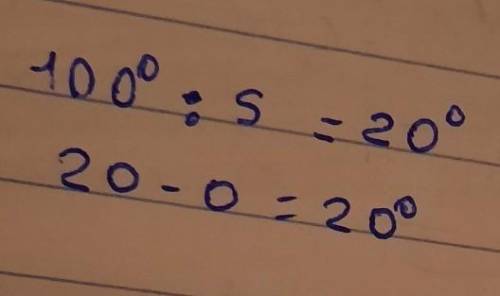 100° : 5 = 20°
20 - 0 = 20°